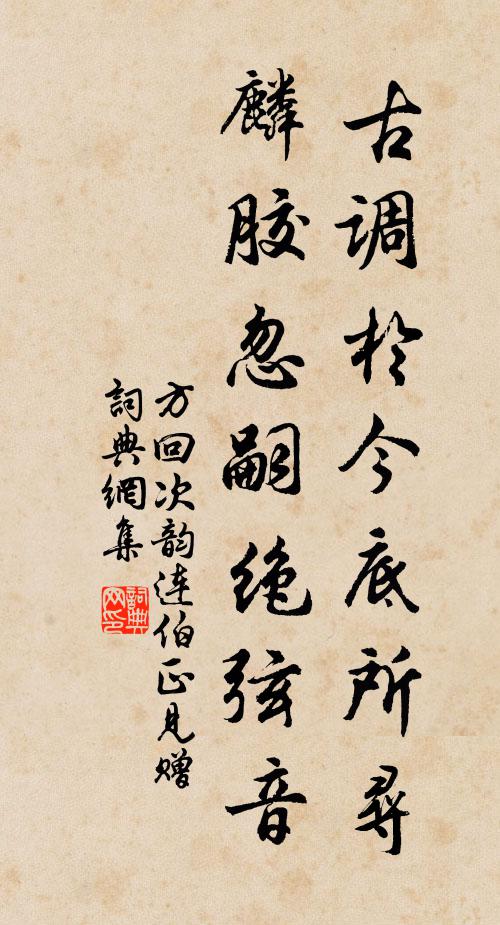 古调於今底所尋
麟胶忽嗣绝弦音
方回次韵连伯正见赠
詞典網集
詞典
网印